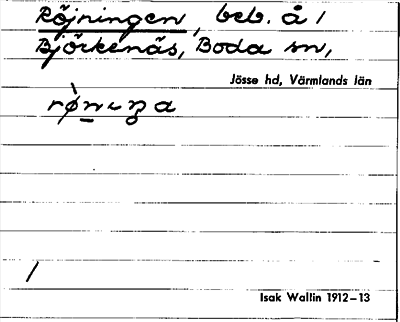 Röjningen, beb. å 1
Björkenäs, Boda sn,
Jösse hd, Värmlands län
/
Isak Wallin 1912–13